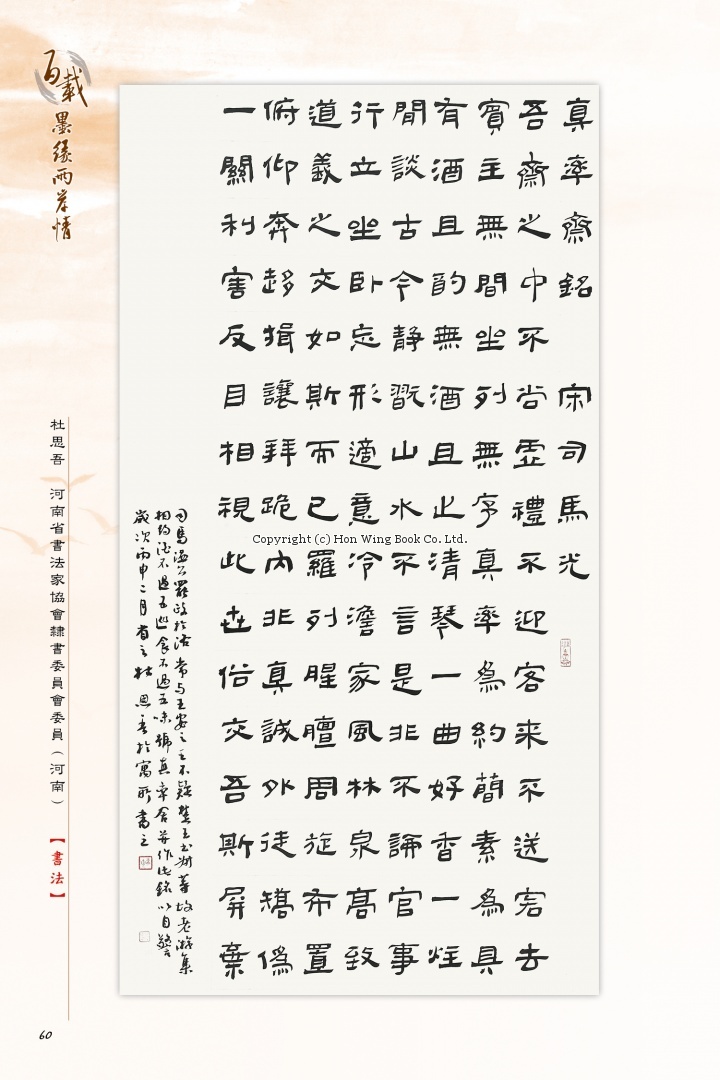 真率齋銘 宋司馬光
吾齋之中不尚虛禮不迎客来不送客去
賓主無間坐列無序真率為約簡素為具
有酒且酌無酒且止清琴一曲好香一炷
閒談古今静翫山水不言是非不論官事
行立坐卧忘形適意冷澹家風林泉髙致
道義之交如斯而已羅列腥膻周旋布置
俯仰奔趍揖讓拜跪内非真誠外徒矯偽
一關利害反目相視此世俗交吾斯屏棄
司馬溫公罷政於洛常与王安之王不疑楚王故老游集
相約酒不過五巡食不過五味號真率會并作此銘以自警
歲次丙申二月省之杜思吾於寓所書之
Copyright (c) Hon Wing Book Co. Ltd.
百載墨緣兩岸情
杜思吾 河南省書法家協會隸書委員會委員（河南）
【書法】
60